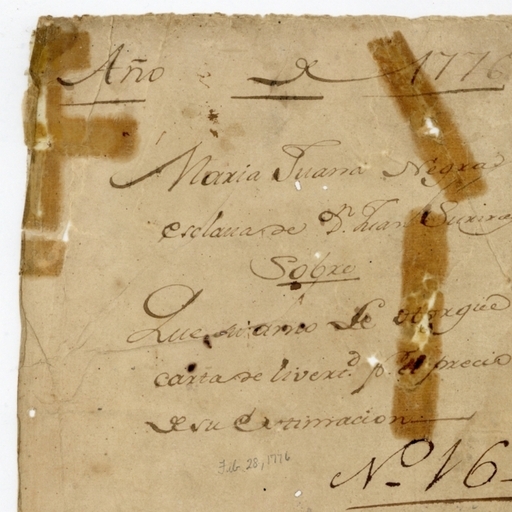 Año de 1776
Maria Juana Negra
esclava de Dn. Juan
Sobre
Que su amo le otorgue
carta de livertd. pr. el precio
de su estimacion
Feb. 28, 1776
No. 16